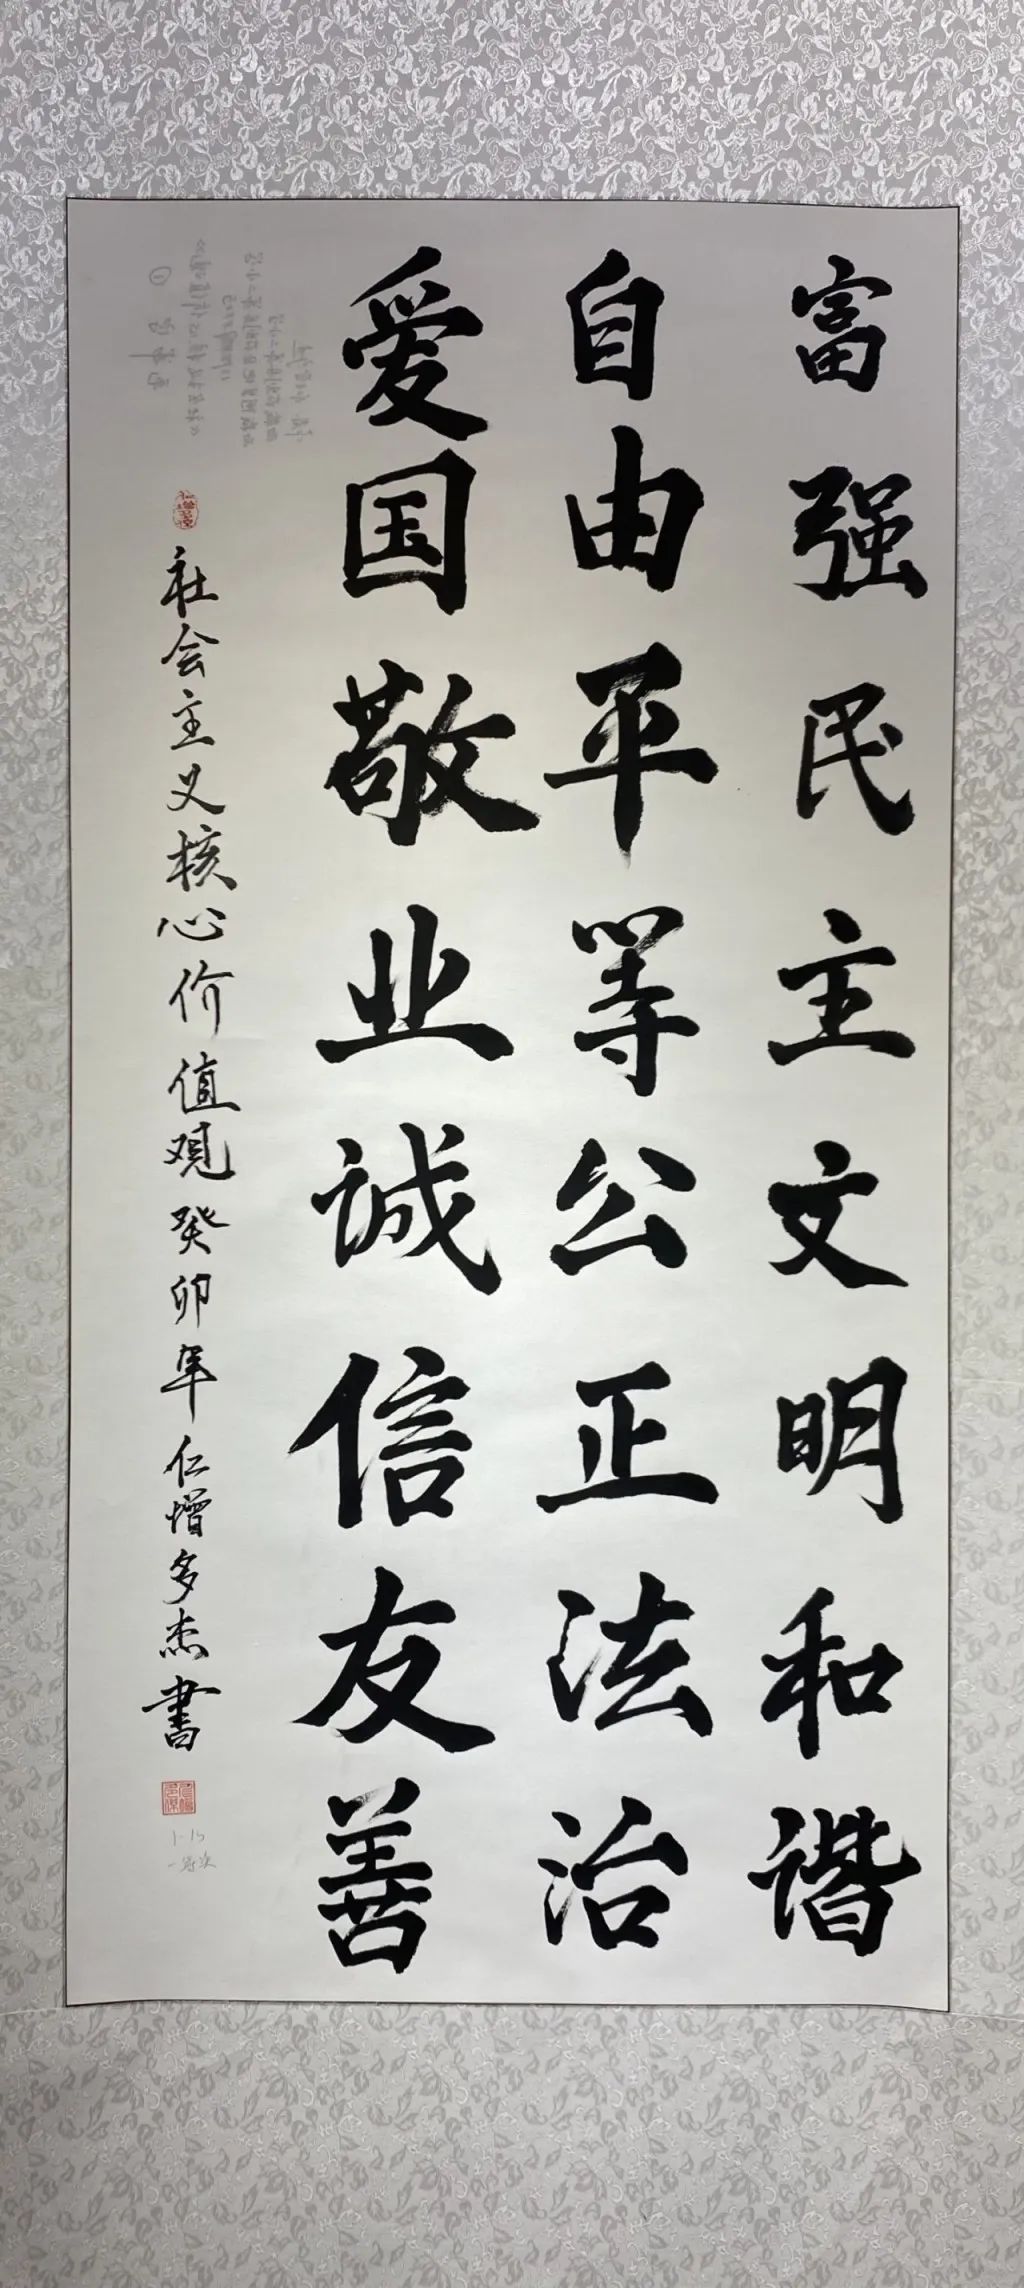 富强民主文明和谐
自由平等公正法治
爱国敬业诚信友善
社会主义核心价值观癸卯年仁增多杰書